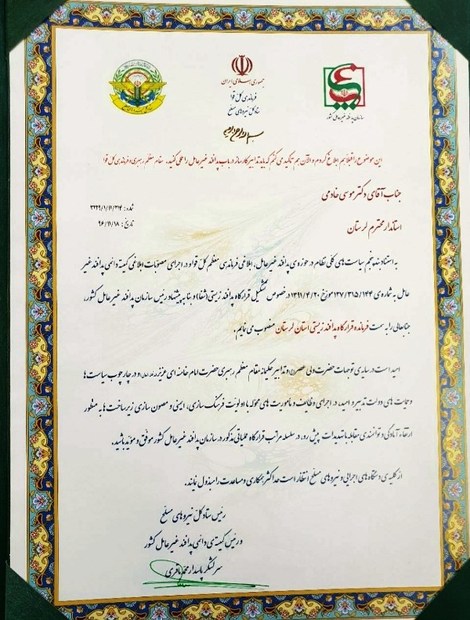 جمهوری اسلامی ایران
فرماندهی کل قوا
ستاد کل نیروهای مسلح
سازمان پدافند غیرعامل کشور
این موضوع را قبلاً هم ابلاغ کردم و الآن هم تأکید می کنم که باید تدابیر کارساز در باب پدافند غیرعامل را عملی کنید. مقام معظم رهبری و فرماندهی کل قوا
شماره: ۲۲۴۹/۱/۱۱/۳۱۴
تاریخ: ۹۶/۱۱/۱۸
جناب آقای دکتر موسی خادمی
استاندار محترم لرستان
به استناد بند پنجم سیاست های کلی نظام در حوزه ی پدافند غیرعامل، ابلاغی فرماندهی معظم کل قوا و در اجرای مصوبات ابلاغی کمیته دائمی پدافند غیر
عامل به شماره ی ۱۲۷/۳۱۵/۱۴۴ مورخ ۱۳۹۱/۴/۲۰ در خصوص تشکیل قرارگاه پدافند زیستی (شفا) و بنا به پیشنهاد رئیس سازمان پدافند غیرعامل کشور،
جنابعالی را به سمت فرمانده قرارگاه پدافند زیستی استان لرستان منصوب می نمایم.
امید است در سایه ی توجهات حضرت ولی عصر و تدابیر حکیمانه مقام معظم رهبری حضرت امام خامنه ای عزیز و در چارچوب سیاست ها
و حمایت های دولت تدبیر و امید، در اجرای وظایف و ماموریت های محوله با اولویت فرهنگ سازی، ایمنی و مصون سازی زیرساخت ها به منظور
ارتقاء آمادگی و توانمندی مقابله با تهدیدات پیش رو، در سلسله مراتب قرارگاه عملیاتی مذکور در سازمان پدافند غیرعامل کشور موفق و مؤید باشید.
از کلیه ی دستگاه های اجرایی و نیروهای مسلح انتظار است حداکثر همکاری و مساعدت را مبذول نمایند.
رئیس ستاد کل نیروهای مسلح
و رئیس کمیته ی دائمی پدافند غیرعامل کشور
سرلشکر پاسدار محمد باقری